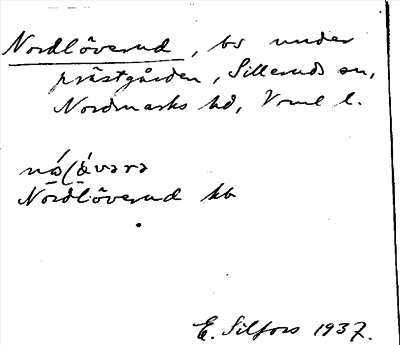 Nordlöverud, bs under
prästgården, Silleruds sn,
Nordmarks hd, Vrml l.
Nordlöverud kb
E. Silfors 1937.